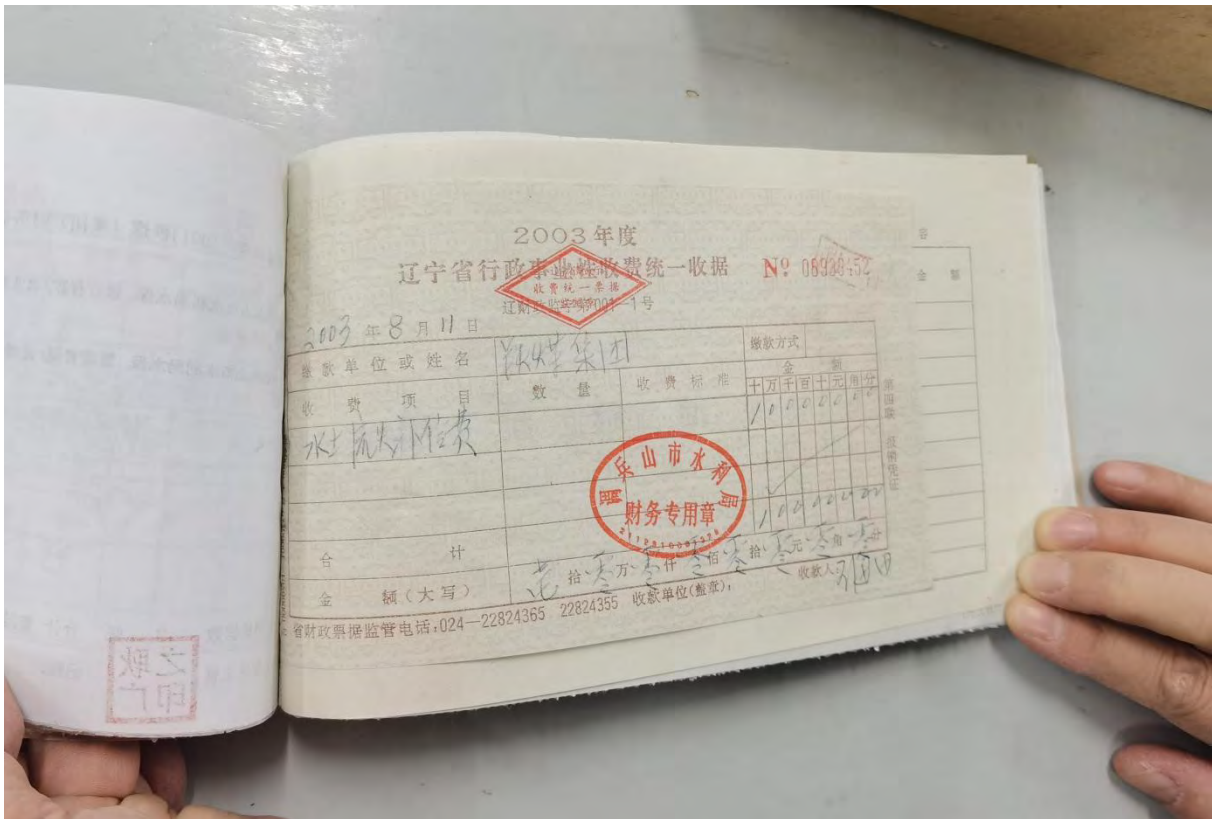 2003年度
辽宁省行政事业性收费统一收据 № 08939452
收费统一票据
辽财政监字第001—1号
2003年8月11日
缴款单位或姓名 铁煤集团 缴款方式
收费项目 数量 收费标准 金额
十万千百十元角分
水土流失补偿费 10000000
第四联 报销凭证
调兵山市水利局
财务专用章
合计 10000000
金额(大写) 壹拾零万零仟零佰零拾零元零角零分
收款人
省财政票据监管电话:024—22824365 22824355 收款单位(盖章):
金额
容